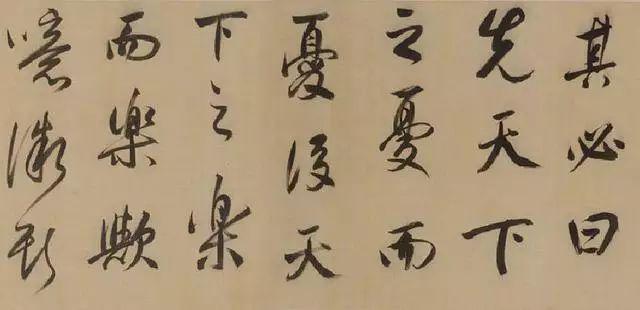 其必曰
先天下
之憂而
憂後天
下之樂
而樂歟
噫微斯